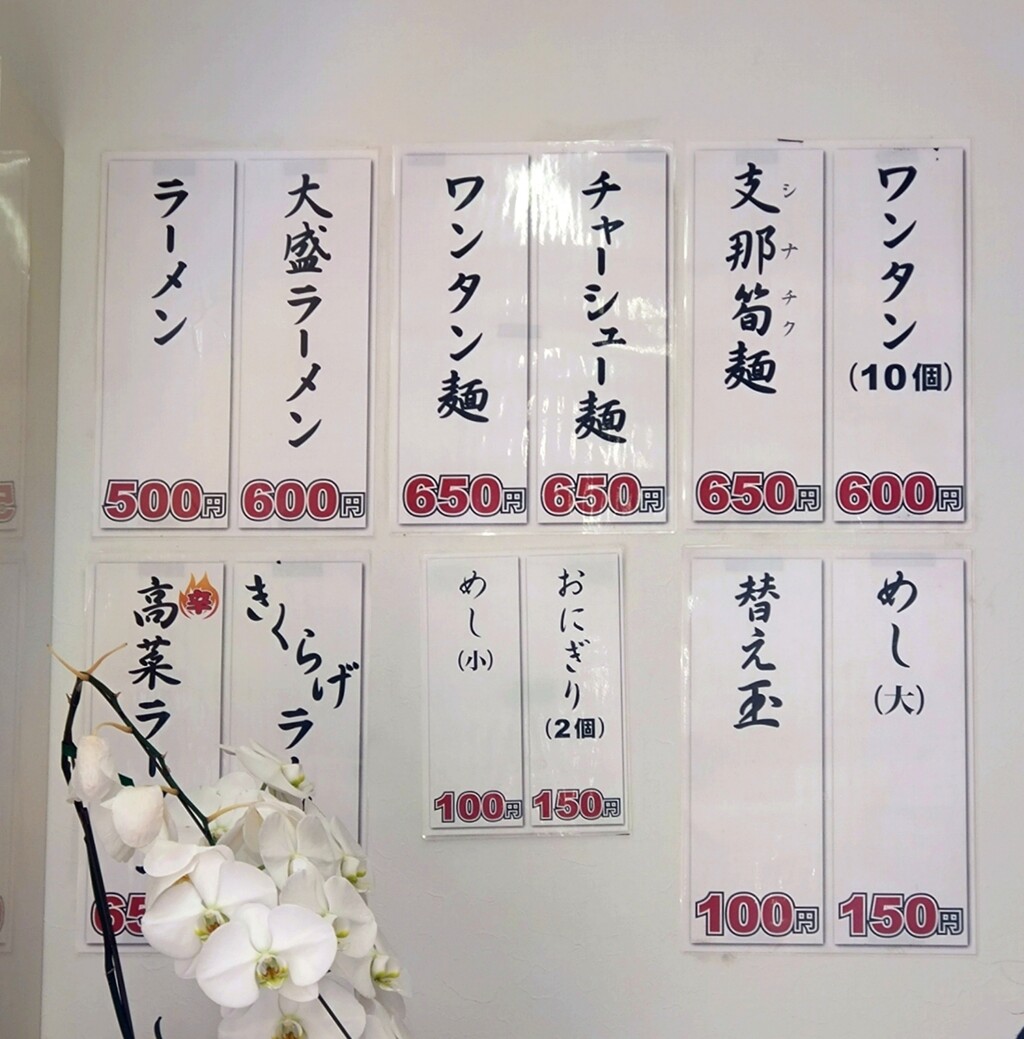 ラーメン
500円
大盛ラーメン
600円
ワンタン麺
650円
チャーシュー麺
650円
支那筍麺
シナチク
650円
ワンタン
(10個)
600円
辛
高菜ラー
65
きくらげ
ラー
めし
(小)
100円
おにぎり
(2個)
150円
替え玉
100円
めし
(大)
150円